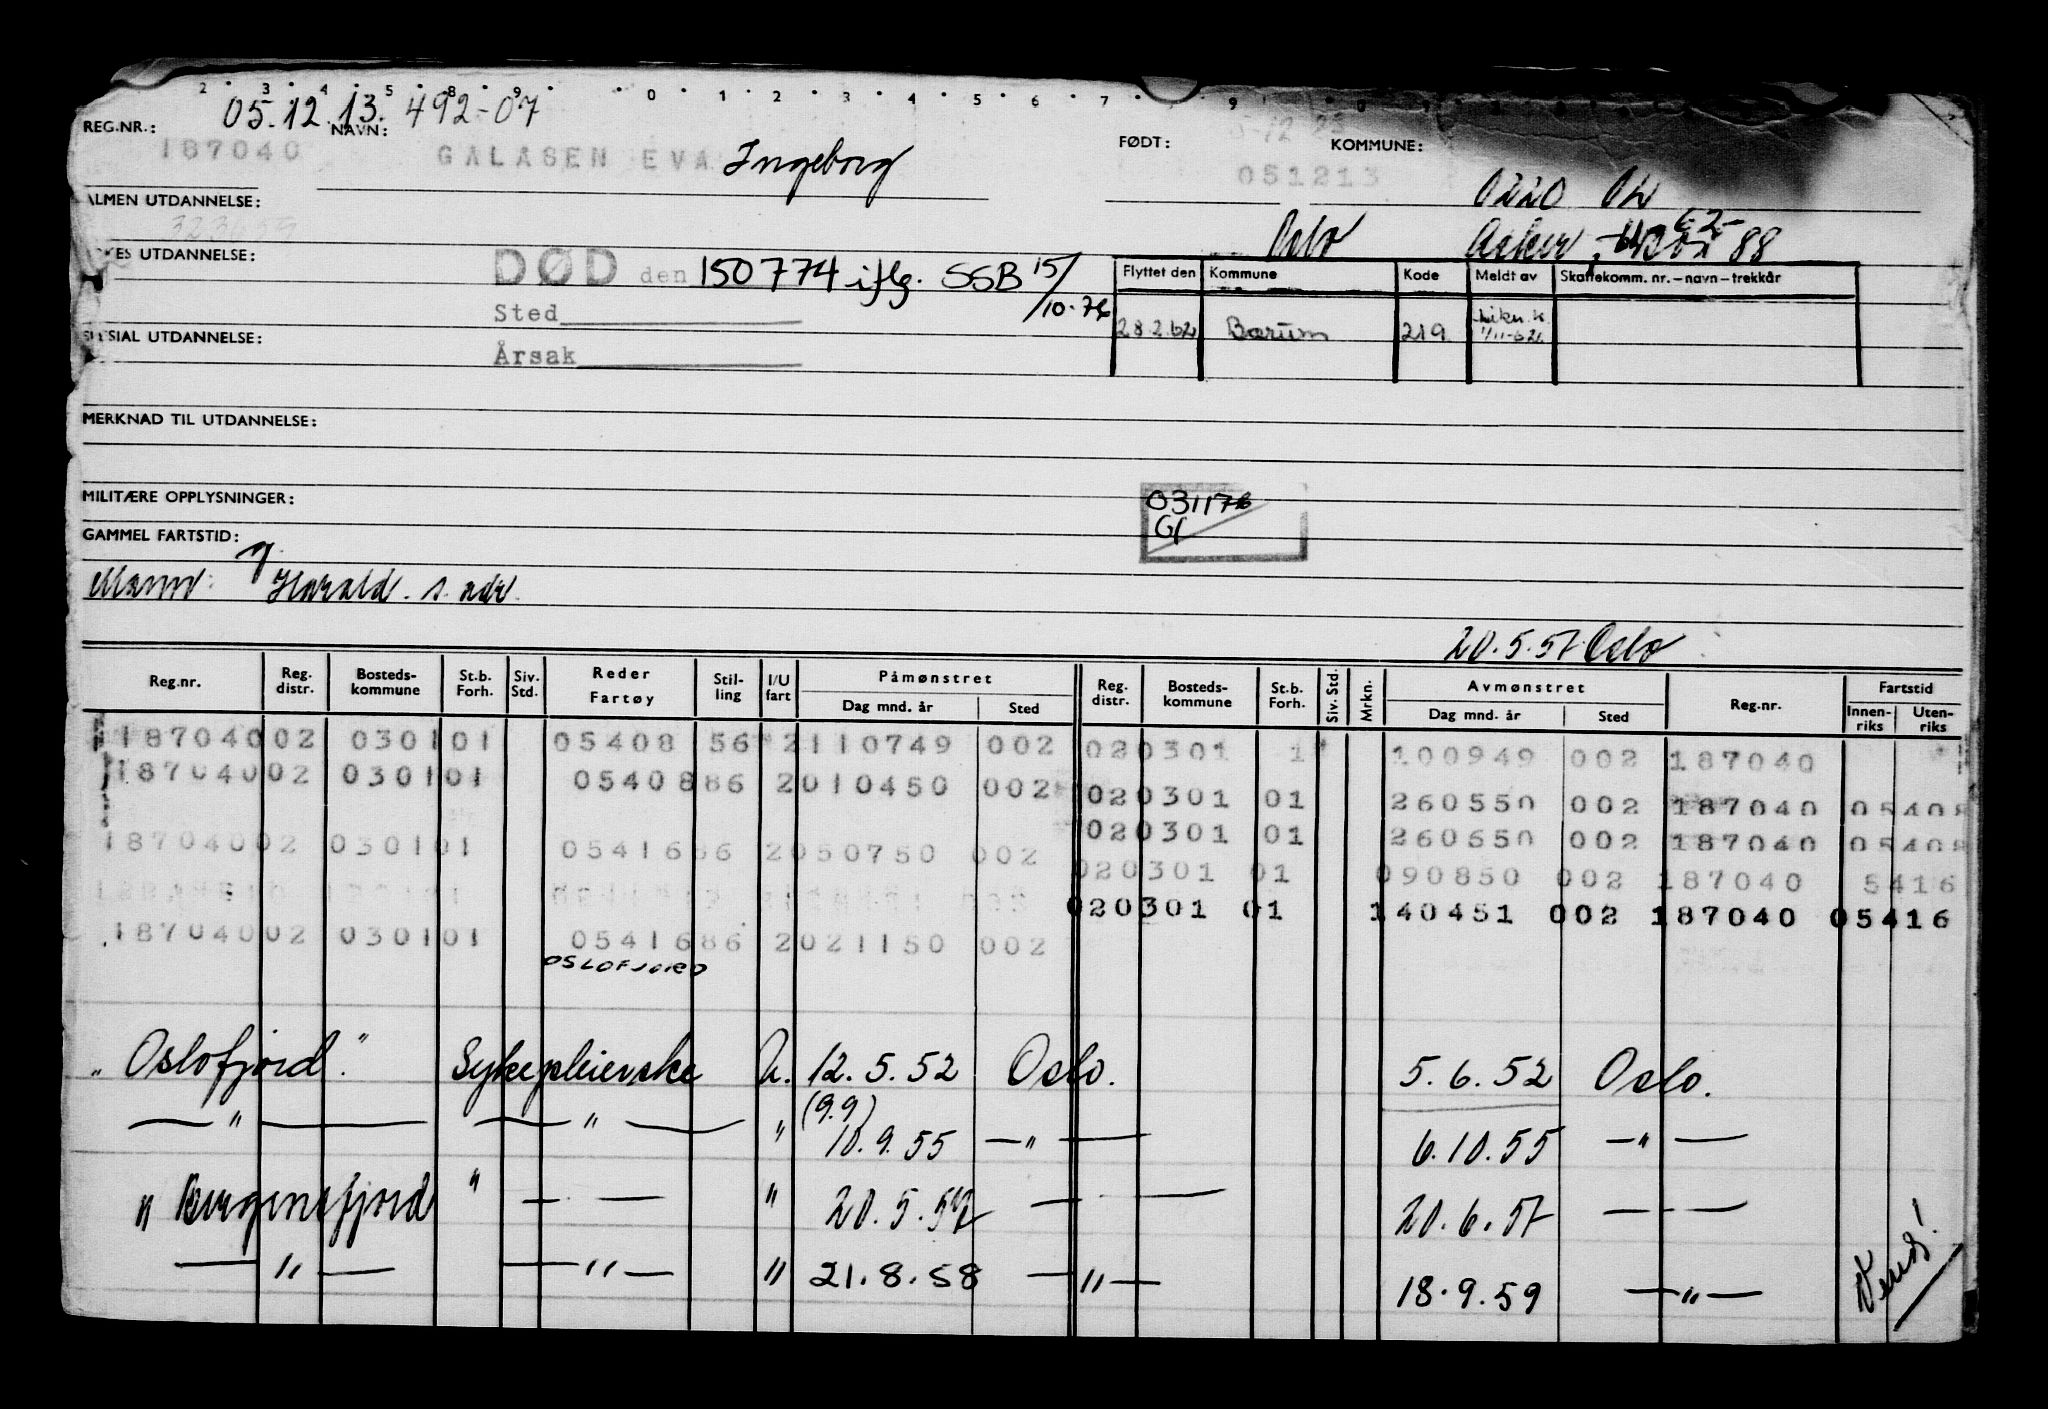 2 3 4 5 8 9 0 1 2 3 4 5 6 7 9
05.12.13. 492-07
REG.NR.: NAVN: FØDT: KOMMUNE:
187040 GALASEN EVA Ingeborg 051213
ALMEN UTDANNELSE:
Oslo Asker
UTDANNELSE:
DØD den 150774 iflg. SSB 15/10.76
Sted
Årsak
Flyttet den Kommune Kode Meldt av Skattekomm. nr.–navn–trekkår
28.2.62 Bærum 219
UTDANNELSE:
MERKNAD TIL UTDANNELSE:
MILITÆRE OPPLYSNINGER:
031176
Gf
GAMMEL FARTSTID:
Mann: Harald. s. adr.
20.5.57 Oslo
Reg.nr. Reg. distr. Bosteds-kommune St.b. Forh. Siv. Std. Reder Fartøy Stil-ling I/U fart Påmønstret Dag mnd. år Sted Reg. distr. Bosteds-kommune St.b. Forh. Siv. Std. Mrkn. Avmønstret Dag mnd. år Sted Reg.nr. Fartstid Innen-riks Uten-riks
187040 02 0301 01 05408 56 2 110749 002 02 0301 1 100949 002 187040
187040 02 0301 01 05408 86 2 010450 002 02 0301 01 260550 002 187040 05408
02 0301 01 260650 002 187040 05408
187040 02 0301 01 05416 86 2 050750 002 02 0301 01 090850 002 187040 5416
02 0301 01 140451 002 187040 05416
187040 02 0301 01 05416 86 2 021150 002
OSLOFJORD
"Oslofjord" Sykepleierske U. 12.5.52 Oslo. 5.6.52 Oslo.
(9.9)
— " — — " — " 10.9.55 — " — 6.10.55 — " —
" Bergensfjord " — — " 20.5.57 — — 20.6.57 — —
— " — — " — " 21.8.58 — " — 18.9.59 — " —
Vend!